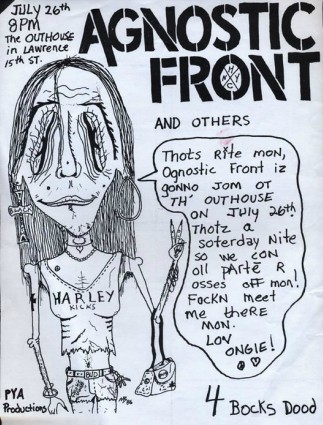 JULY 26th
8PM
The OUTHOUSE
in LAWRENCE
15th ST.
AGNOSTIC
FRONT
NYHC
AND OTHERS
Thots Rite mon,
Ognostic Front iz
gonno Jom ot
TH' OUTHOUSE
ON JULY 26th!
Thotz a
soterday Nite
so we con
oll pArtè R
osses off mon!
Fockn meet
me there
mon.
Lov
ONGIE!
HARLEY
KICKS
PYA
Productions
4 Bocks Dood